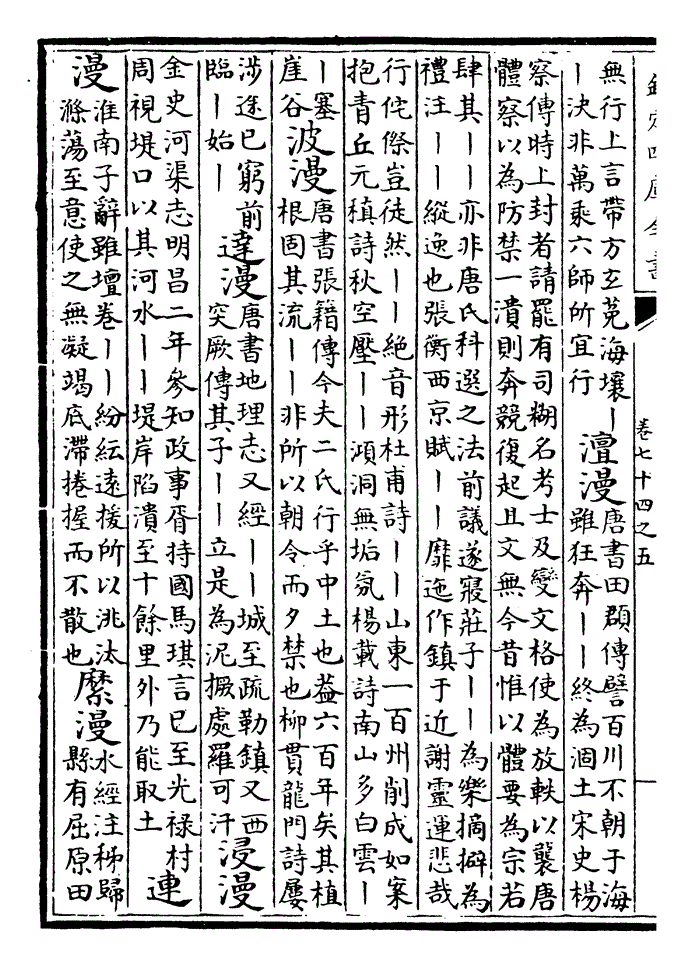 欽定四庫全書
卷七十四之五
無行上言帶方玄菟海壤｜
｜決非萬乘六師所宜行
澶漫
唐書田羣傳譬百川不朝于海
雖狂奔｜｜終為涸土宋史楊
察傳時上封者請罷有司糊名考士及變文格使為放軼以襲唐
體察以為防禁一潰則奔競復起且文無今昔惟以體要為宗若
肆其｜｜亦非唐氏科選之法前議遂寢莊子｜｜為樂摘擗為
禮注｜｜縱逸也張衡西京賦｜｜靡迤作鎮于近謝靈運悲哉
行侘傺豈徒然｜｜絕音形杜甫詩｜｜山東一百州削成如案
抱青丘元稹詩秋空壓｜｜澒洞無垢氛楊載詩南山多白雲｜
｜塞
崖谷
波漫
唐書張籍傳今夫二氏行乎中土也葢六百年矣其植
根固其流｜｜非所以朝令而夕禁也柳貫龍門詩屢
涉途已窮前
臨｜始｜
達漫
唐書地理志又經｜｜城至疏勒鎮又西
突厥傳其子｜｜立是為泥撅處羅可汗
浸漫
金史河渠志明昌二年參知政事胥持國馬琪言已至光禄村
周視堤口以其河水｜｜堤岸陷潰至十餘里外乃能取土
連
漫
淮南子辭雖壇卷｜｜紛紜遠援所以洮汰
滌蕩至意使之無凝竭底滯捲握而不散也
縻漫
水經注秭歸
縣有屈原田